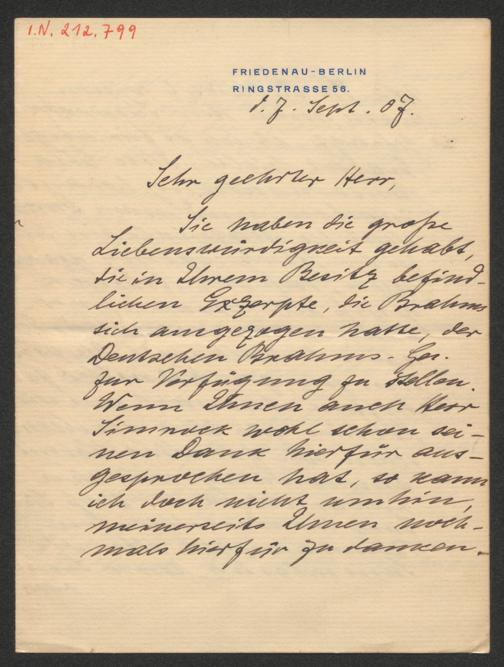 I.N. 212.799
FRIEDENAU-BERLIN
RINGSTRASSE 56.
d. 7. Sept. 07.
Sehr geehrter Herr,
Sie haben die große
Liebenswürdigkeit gehabt,
die in Ihrem Besitz befind-
lichen Exzerpte, die Brahms
sich angezogen hatte, der
Deutschen Brahms-Ges.
zur Verfügung zu stellen.
Wenn Ihnen auch Herr
Simrock wohl schon sei-
nen Dank hierfür aus-
gesprochen hat, so kann
ich doch nicht umhin,
meinerseits Ihnen noch-
mals hierfür zu danken.